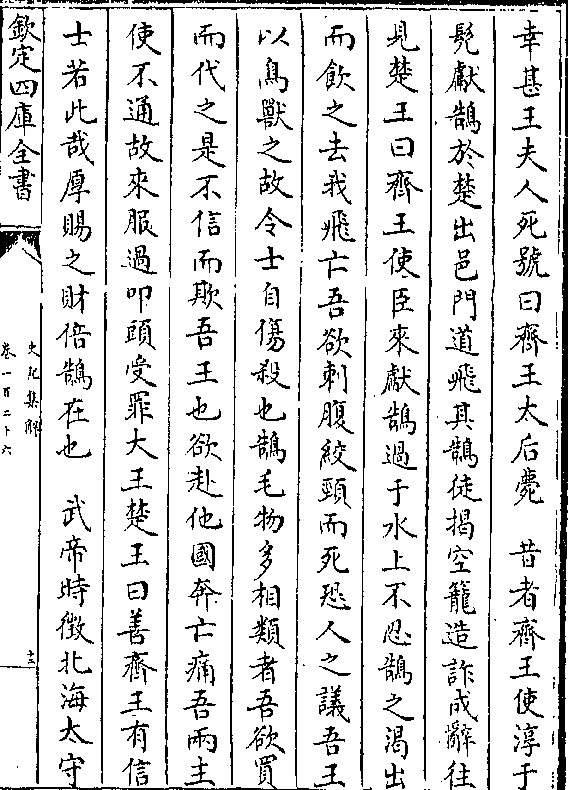 幸甚王夫人死號曰齊王太后薨　昔者齊王使淳于
髡獻鵠於楚出邑門道飛其鵠徒揭空籠造詐成辭往
見楚王曰齊王使臣來獻鵠過于水上不忍鵠之渴出
而飲之去我飛亡吾欲刺腹絞頸而死恐人之議吾王
以鳥獸之故令士自傷殺也鵠毛物多相類者吾欲買
而代之是不信而欺吾王也欲赴他國奔亡痛吾兩主
使不通故來服過叩頭受罪大王楚王曰善齊王有信
士若此哉厚賜之財倍鵠在也　武帝時徴北海太守
欽定四庫全書
史記集解
卷一百二十六
十二